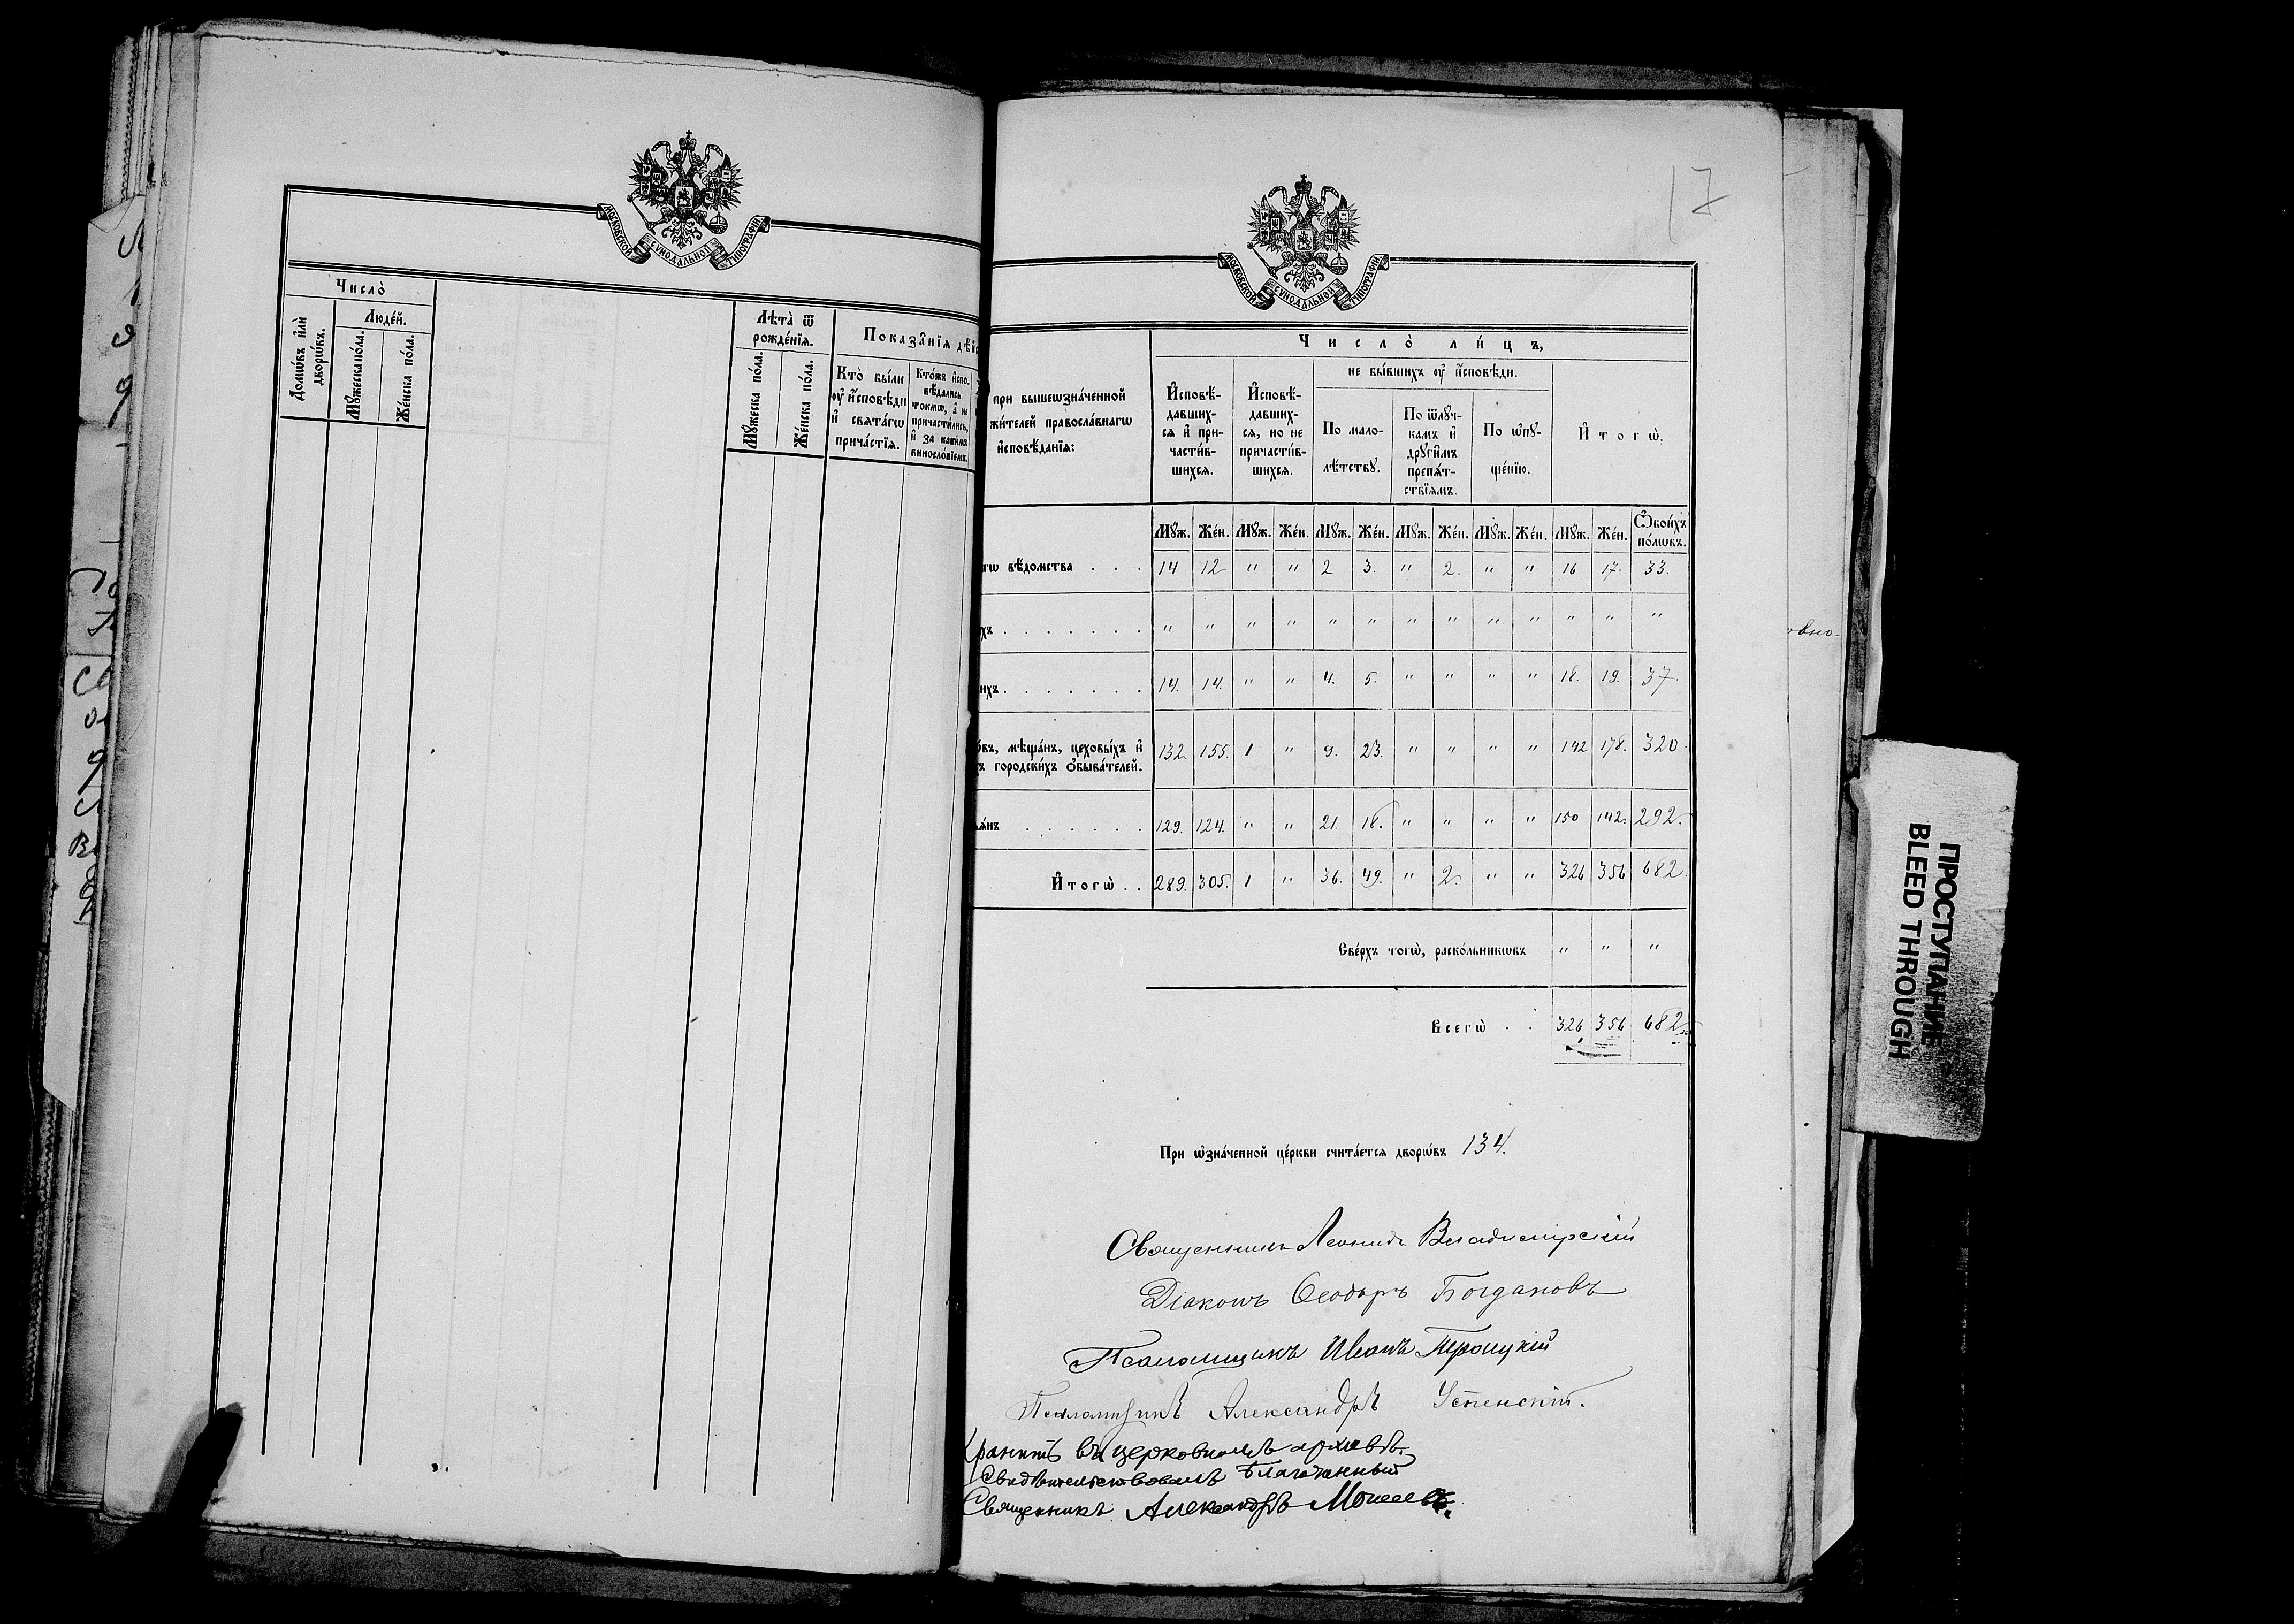 МОСКОВСКОЙ СѴНОДАЛЬНОЙ ТИПОГРАФІИ
Число̀
Домѡ́въ и҆лѝ дворѡ́въ.
Люде́й.
Мꙋ́жеска по́ла.
Же́нска по́ла.
Лѣта̀ ѿ рожде́нїѧ.
Мꙋ́жеска по́ла.
Же́нска по́ла.
Показа̑нїѧ дѣ́й
Кто̀ бы́ли
ᲂу҆ и҆́сповѣди
и҆ свѧта́гѡ
прича́стїѧ.
Кто́жъ и҆спо-
вѣ́дались
то́кмѡ, а҆ не
причасти́лись,
и҆ за каки́мъ
виносло́вїемъ.
17
МОСКОВСКОЙ СѴНОДАЛЬНОЙ ТИПОГРАФІИ
при вышеѡзна́ченной
жи́телей правосла́внагѡ
и҆сповѣ́данїѧ:
Число̀ ли́цъ,
И҆сповѣ́-
давших-
сѧ и҆ при-
части́в-
шихсѧ.
И҆сповѣ́-
давших-
сѧ, но не
причасти́в-
шихсѧ.
не бы́вшихъ ᲂу҆ и҆́сповѣди.
По мало-
лѣ́тствꙋ.
По ѿлꙋ́ч-
камъ и҆
дрꙋги̑мъ
препѧ́т-
ствїѧмъ.
По ѡ҆пꙋ-
ще́нїю.
И҆того̀.
Мꙋж. Же́н. Мꙋж. Же́н. Мꙋж. Же́н. Мꙋж. Же́н. Мꙋж. Же́н. Мꙋж. Же́н. Ѻ҆бои́хъ по́лѡвъ.
гѡ вѣ́домства . . . 14 12 " " 2 3. " 2. " " 16 17. 33.
хъ . . . . . . . " " " " " " " " " " " " "
ихъ . . . . . . . 14. 14. " " 4. 5. " " " " 18. 19. 37.
ѡ́въ, мѣща́нъ, цеховы́хъ и҆
хъ городски́хъ ѻ҆быва́телей. 132. 155. 1 " 9. 23. " " " " 142 178. 320.
ѧ́нъ . . . . . . 129. 124. " " 21. 18. " " " " 150 142. 292.
И҆того̀ . . 289. 305. 1 " 36. 49. " 2. " " 326 356 682.
Све́рхъ тогѡ̀, раско́льникѡвъ " " "
Всегѡ̀ . . 326 356 682
При ѡ҆зна́ченной це́ркви счита́етсѧ дворѡ́въ 134.
Священникъ Леонидъ Владимірскій
Діаконъ Ѳеодоръ Богдановъ
Псаломщикъ Иванъ Троицкій
Псаломщикъ Александръ Успенскій.
Хранить въ церковномъ архивѣ.
Свидѣтельствовалъ Благочинный
Священникъ Александръ Моисеевъ.
вно-
ПРОСТУПАНИЕ
BLEED THROUGH